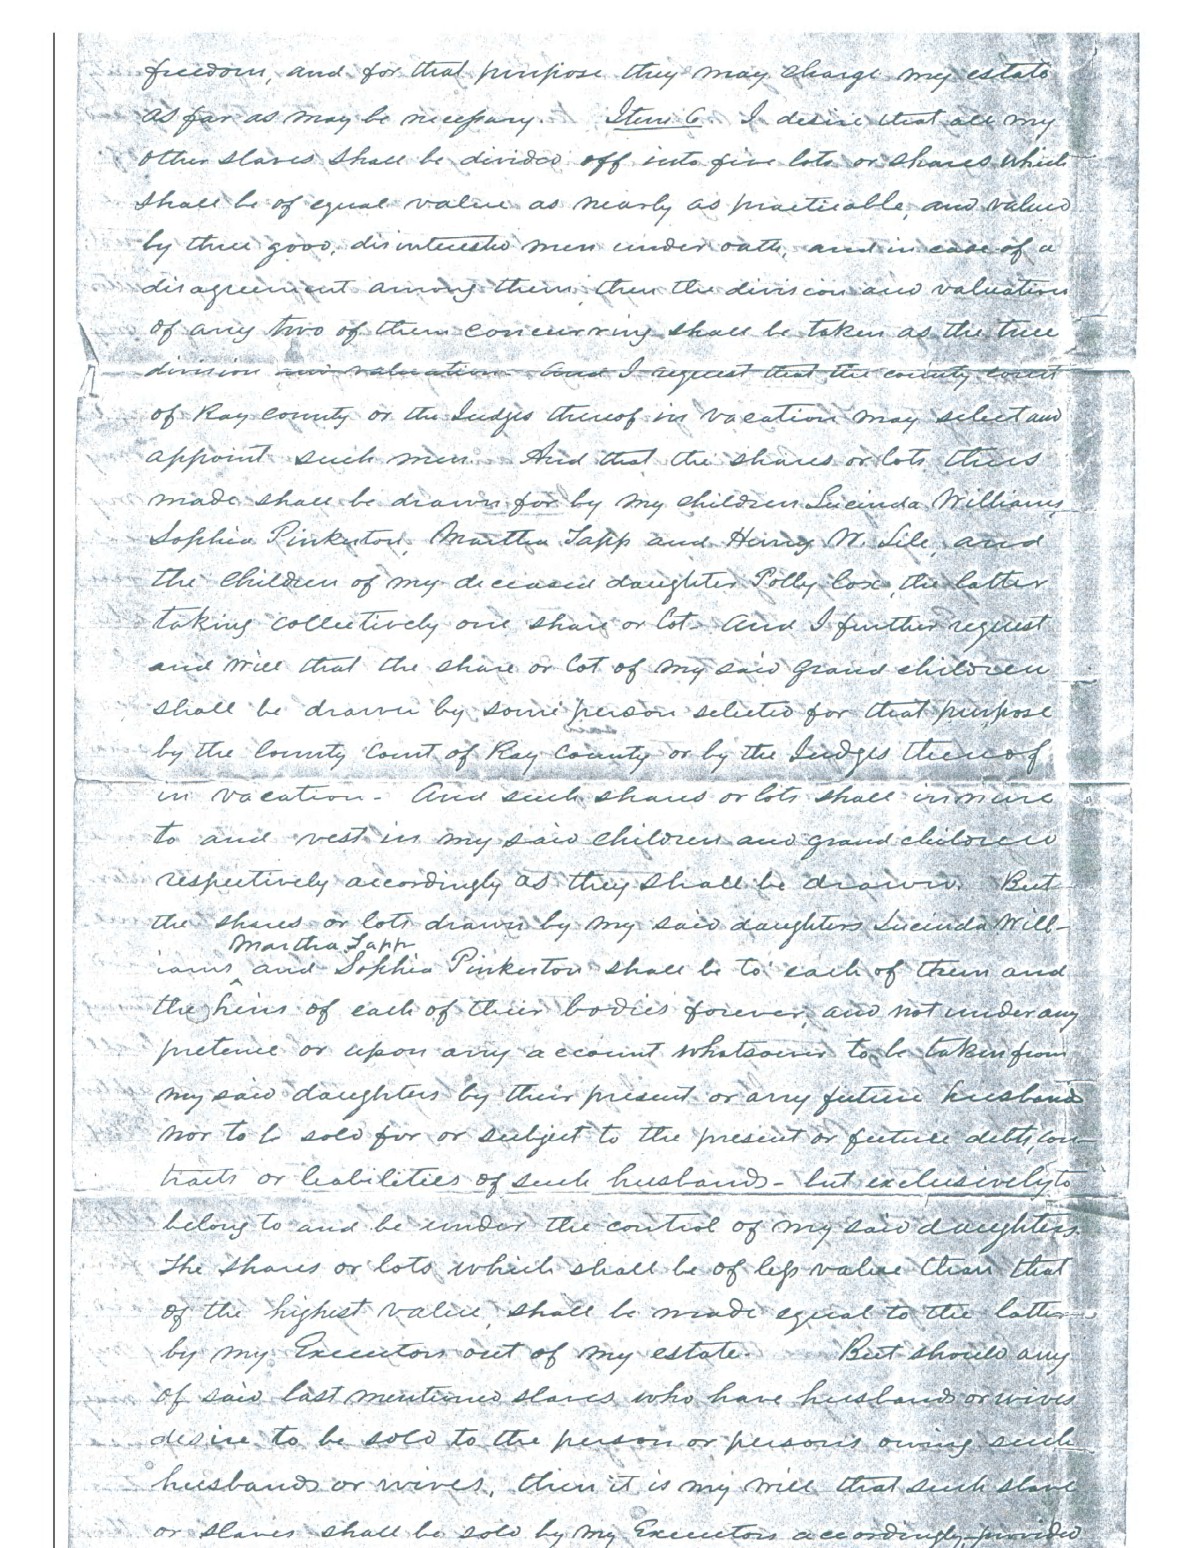 freedom, and for that purpose they may charge my estate
as far as may be necessary. Item 6. I desire that all my
other slaves shall be divided off into five lots or shares which
shall be of equal value as nearly as practicable, and valued
by three good, disinterested men under oath, and in case of a
disagreement among them, then the division and valuation
of any two of them concurring shall be taken as the true
division and valuation. And I request that the county court
of Ray county or the Judges thereof in vacation may select and
appoint such men. And that the shares or lots thus
made shall be drawn for by my children Lucinda Williams,
Sophia Pinkerton, Martha Tapp and Henry W. Lile and
the children of my deceased daughter Polly Cox, the latter
taking collectively one share or lot. And I further request
and will that the share or lot of my said grand children
shall be drawn by some person selected for that purpose
said
by the County Court of Ray County or by the Judges thereof
in vacation - And such shares or lots shall inure
to and vest in my said children and grand children
respectively accordingly as they shall be drawn. But
the shares or lots drawn by my said daughters Lucinda Will-
Martha Tapp
iams ^ and Sophia Pinkerton shall be to each of them and
the heirs of each of their bodies forever, and not under any
pretence or upon any account whatsoever to be taken from
my said daughters by their present or any future husband
nor to be sold for or subject to the present or future debts, con-
tracts or liabilities of such husbands - but exclusively to
belong to and be under the control of my said daughters.
The shares or lots which shall be of less value than that
of the highest value, shall be made equal to the latter
by my Executors out of my estate. But should any
of said last mentioned slaves who have husbands or wives
desire to be sold to the person or persons owning such
husbands or wives, then it is my will that such slave
or slaves shall be sold by my Executors accordingly, provided